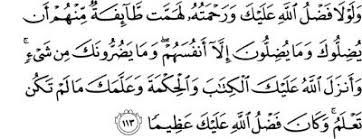 وَلَوْلَا فَضْلُ ٱللَّهِ عَلَيْكَ وَرَحْمَتُهُۥ لَهَمَّت طَّآئِفَةٌ مِّنْهُمْ أَن
يُضِلُّوكَ وَمَا يُضِلُّونَ إِلَّآ أَنفُسَهُمْ ۖ وَمَا يَضُرُّونَكَ مِن شَىْءٍ ۚ
وَأَنزَلَ ٱللَّهُ عَلَيْكَ ٱلْكِتَـٰبَ وَٱلْحِكْمَةَ وَعَلَّمَكَ مَا لَمْ تَكُن
تَعْلَمُ ۚ وَكَانَ فَضْلُ ٱللَّهِ عَلَيْكَ عَظِيمًا ١١٣